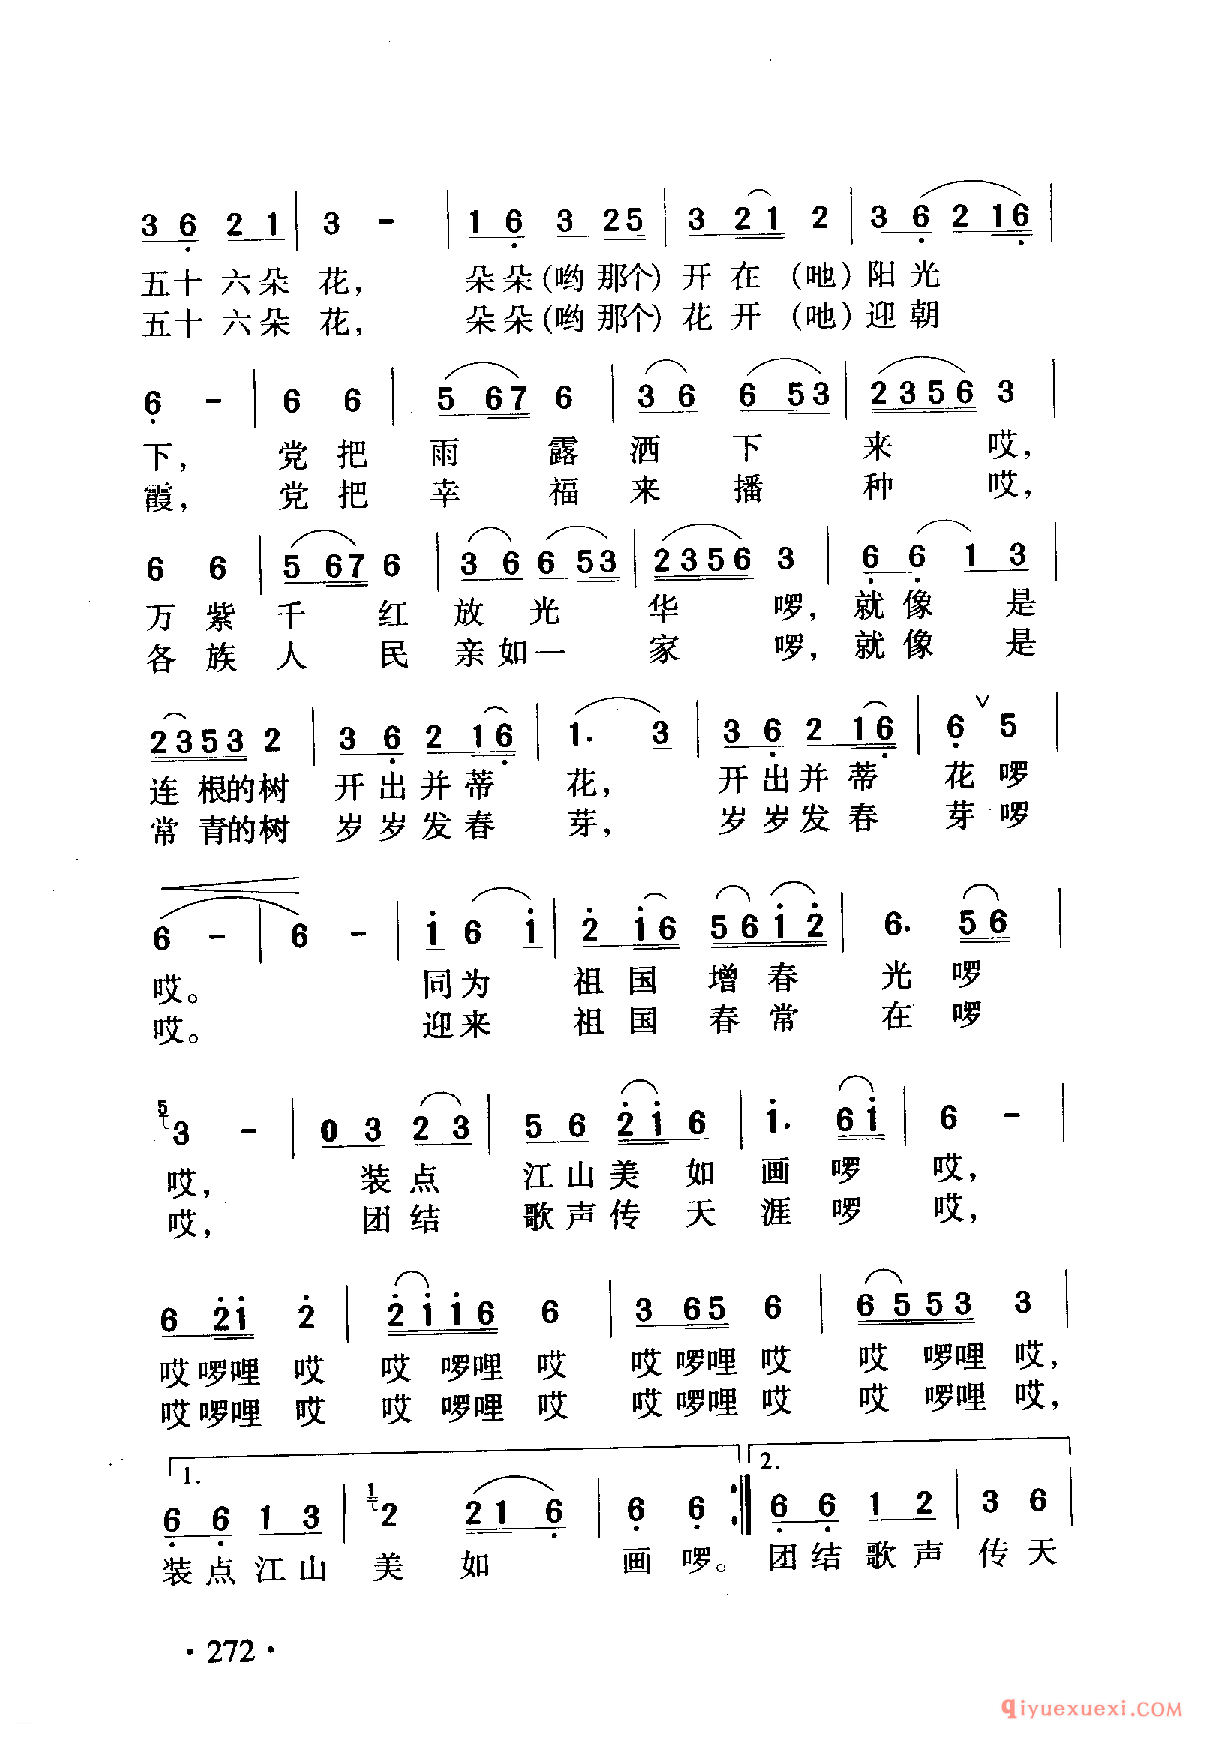 3 6 2 1 | 3 - | 1 6 3 25 | 3 21 2 | 3 6 2 16 |
五十六朵 花， 朵朵(哟那个)开在(吔)阳光
五十六朵 花， 朵朵(哟那个)花开(吔)迎朝
6 - | 6 6 | 5 67 6 | 3 6 6 53 | 2356 3 |
下， 党把雨露洒下来哎，
霞， 党把幸福来播种哎，
6 6 | 5 67 6 | 3 6 6 53 | 2356 3 | 6 6 1 3 |
万紫千红放光华啰，就像是
各族人民亲如一家啰，就像是
2353 2 | 3 6 2 16 | 1. 3 | 3 6 2 16 | 6 ∨ 5 |
连根的树开出并蒂花，开出并蒂花啰
常青的树岁岁发春芽，岁岁发春芽啰
6 - | 6 - | i 6 i | 2 i6 56i2 | 6. 56 |
哎。 同为祖国增春光啰
哎。 迎来祖国春常在啰
5 3 - | 0 3 2 3 | 5 6 2i 6 | i. 6i | 6 -
哎， 装点江山美如画啰哎，
哎， 团结歌声传天涯啰哎，
6 2i 2 | 2ii6 6 | 3 65 6 | 6553 3 |
哎啰哩哎 哎啰哩哎 哎啰哩哎 哎啰哩哎，
哎啰哩哎 哎啰哩哎 哎啰哩哎 哎啰哩哎，
1. 2.
6 6 1 3 | 1 2 21 6 | 6 6 :‖ 6 6 1 2 | 3 6 |
装点江山美如画啰。团结歌声传天
· 272 ·
qiyuexuexi.COM